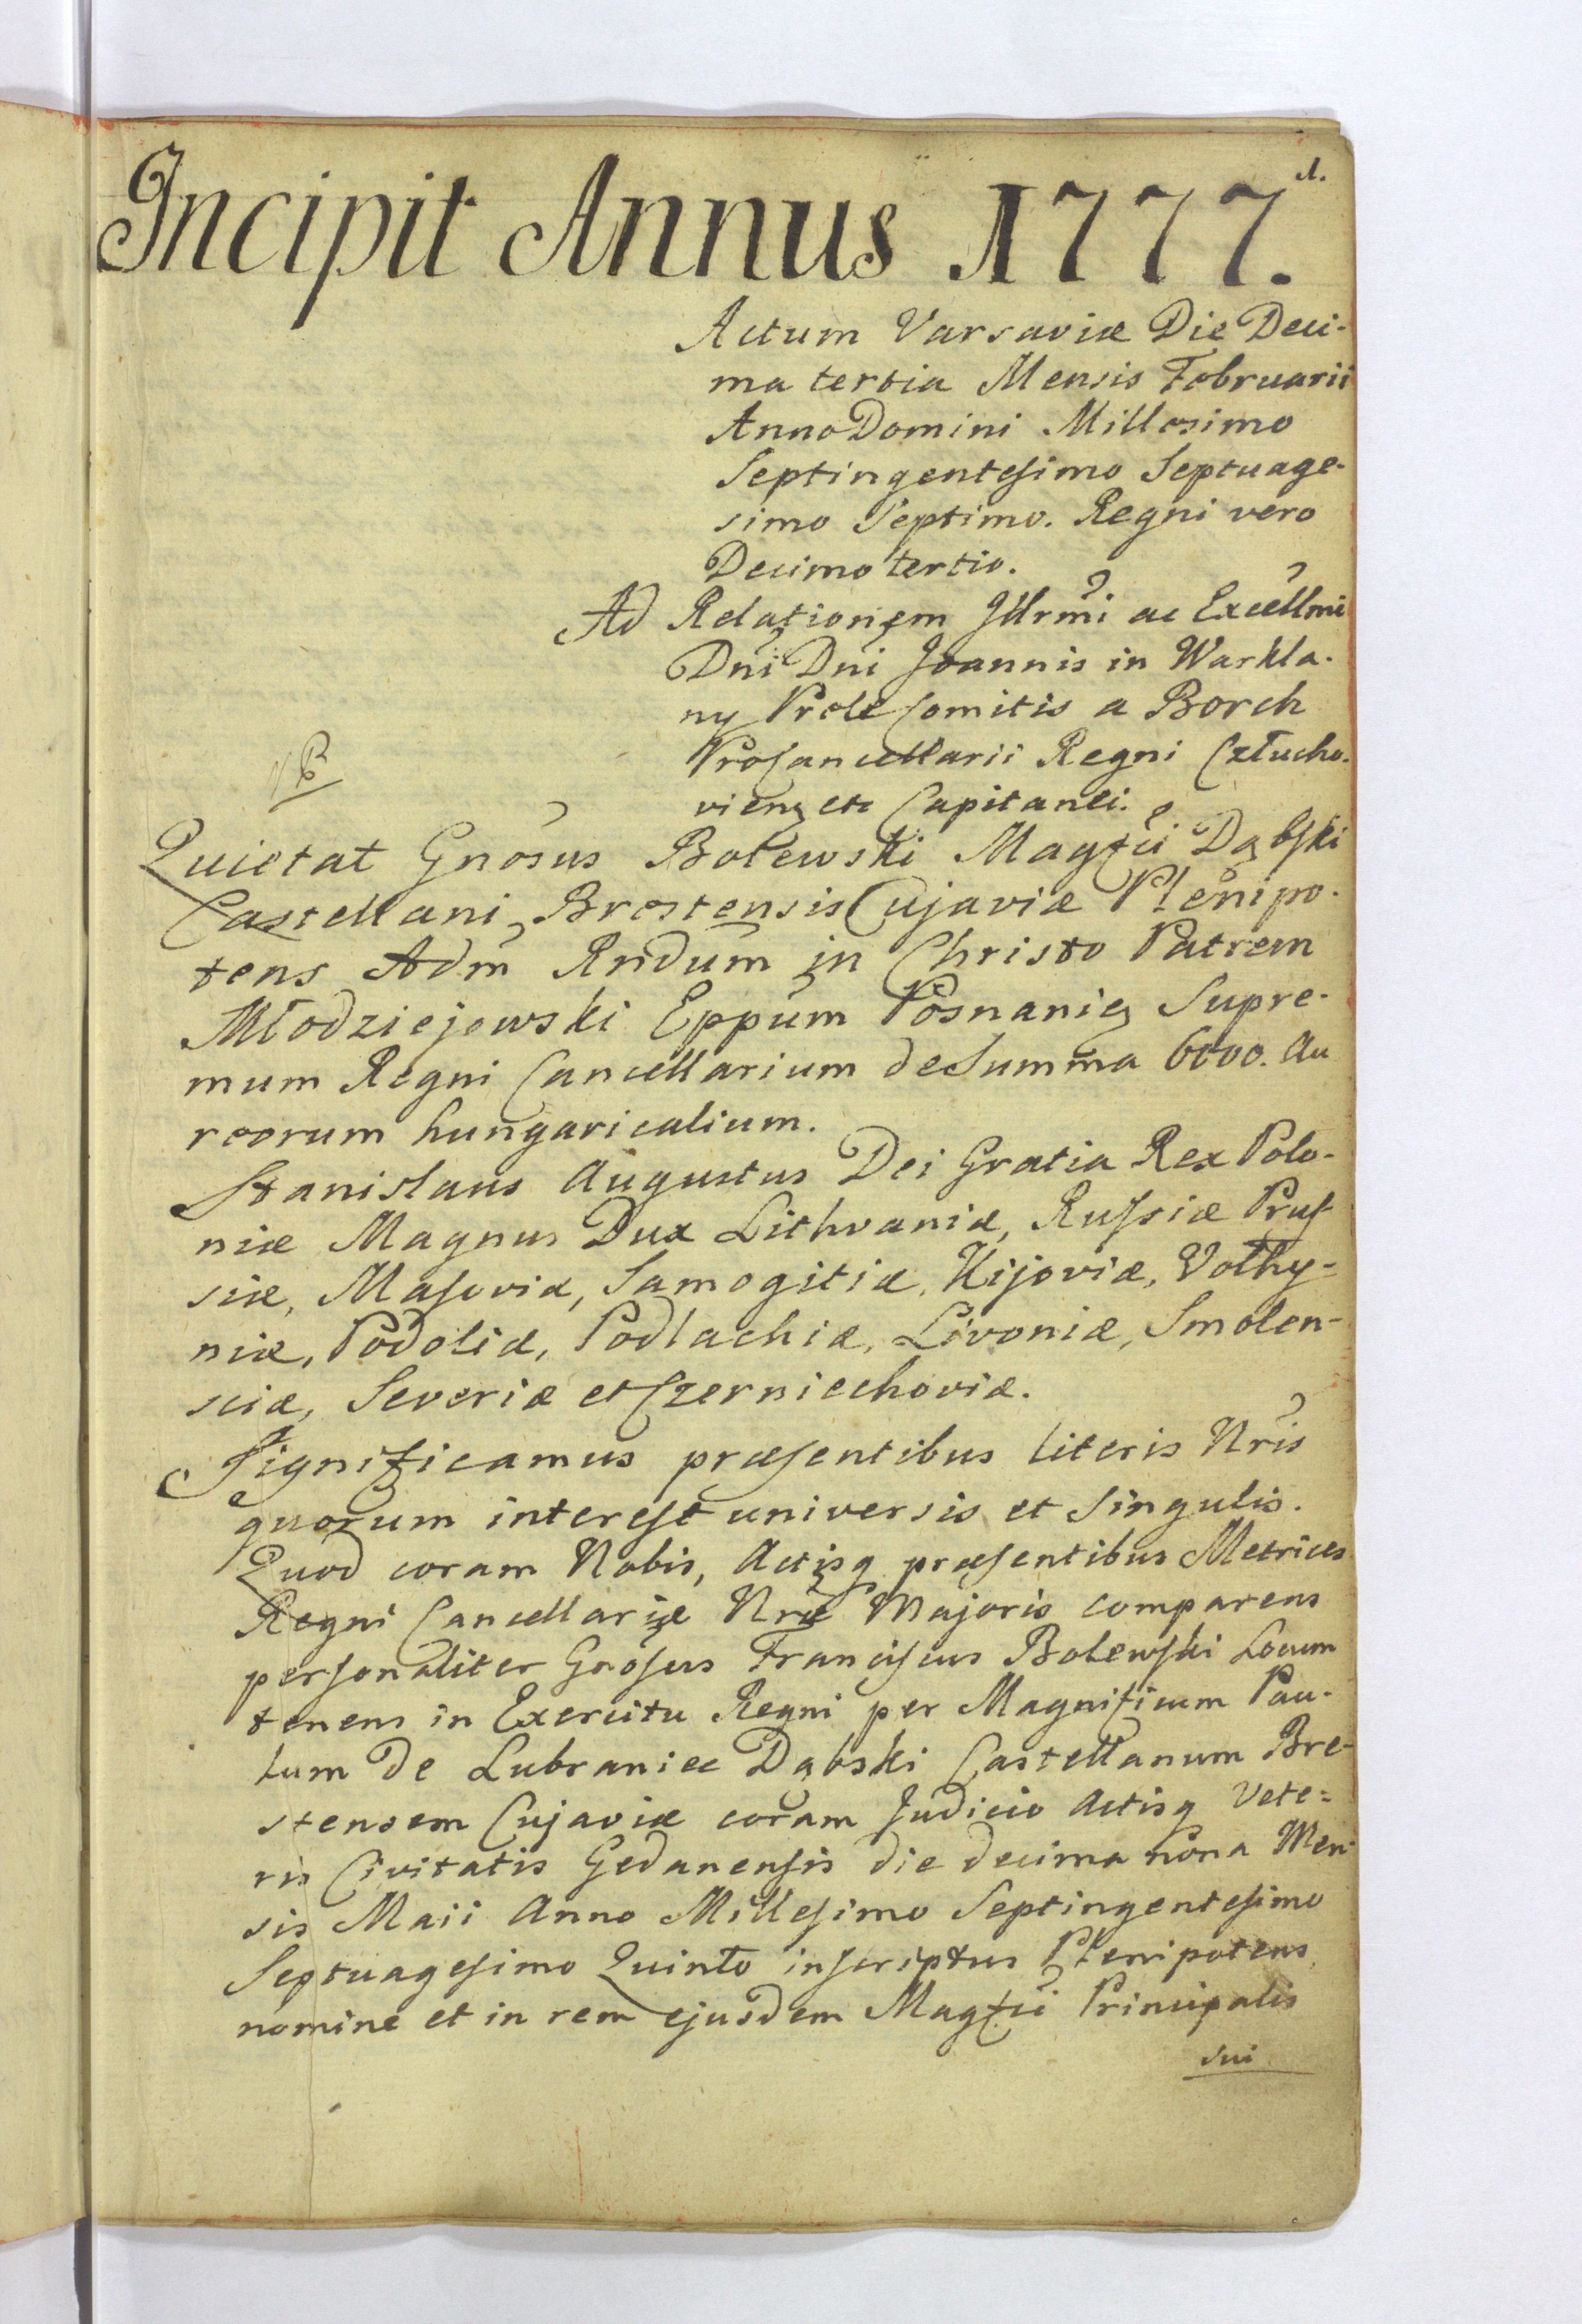 1.
Incipit Annus 1777.
Actum Varsaviæ Die Deci-
ma tertia Mensis Februarii
Anno Domini Millesimo
Septingentesimo Septuage-
simo Septimo. Regni vero
Decimo tertio.
Ad Relationem Jllrmi ac Excellmi
Dni Dni Joannis in Warkla-
ny Prole Comitis a Borch
ProCancellarii Regni Człucho-
vien etc Capitanei.
NB
Quietat Gnosus Bolewski Magfci Dąbski
Castellani Brestensis Cujaviæ Plenipo-
tens Adm Rndum in Christo Patrem
Młodziejewski Eppum Posnanię Supre-
mum Regni Cancellarium de Summa 6000. Au
reorum hungaricalium.
Stanislaus Augustus Dei Gratia Rex Polo-
niæ Magnus Dux Lithvaniæ, Russiæ Prus
siæ, Masoviæ, Samogitiæ, Kijoviæ, Volhy-
niæ, Podoliæ, Podlachiæ, Livoniæ, Smolen-
sciæ, Severiæ et Czerniechoviæ.
Significamus præsentibus literis Nris
quorum interest universis et Singulis.
Quod coram Nobis, Actisq præsentibus Metrices
Regni Cancellariæ Nræ Majoris comparens
personaliter Gnosus Franciscus Bolewski Locum
tenens in Exercitu Regni per Magnificum Pau-
lum de Lubraniec Dąbski Castellanum Bre-
stensem Cujaviæ coram Judicio Actisq Vete-
ris Civitatis Gedanensis die decima nona Men
sis Maii Anno Millesimo Septingentesimo
Septuagesimo Quinto inscriptus Plenipotens,
nomine et in rem ejusdem Magfci Principalis
sui